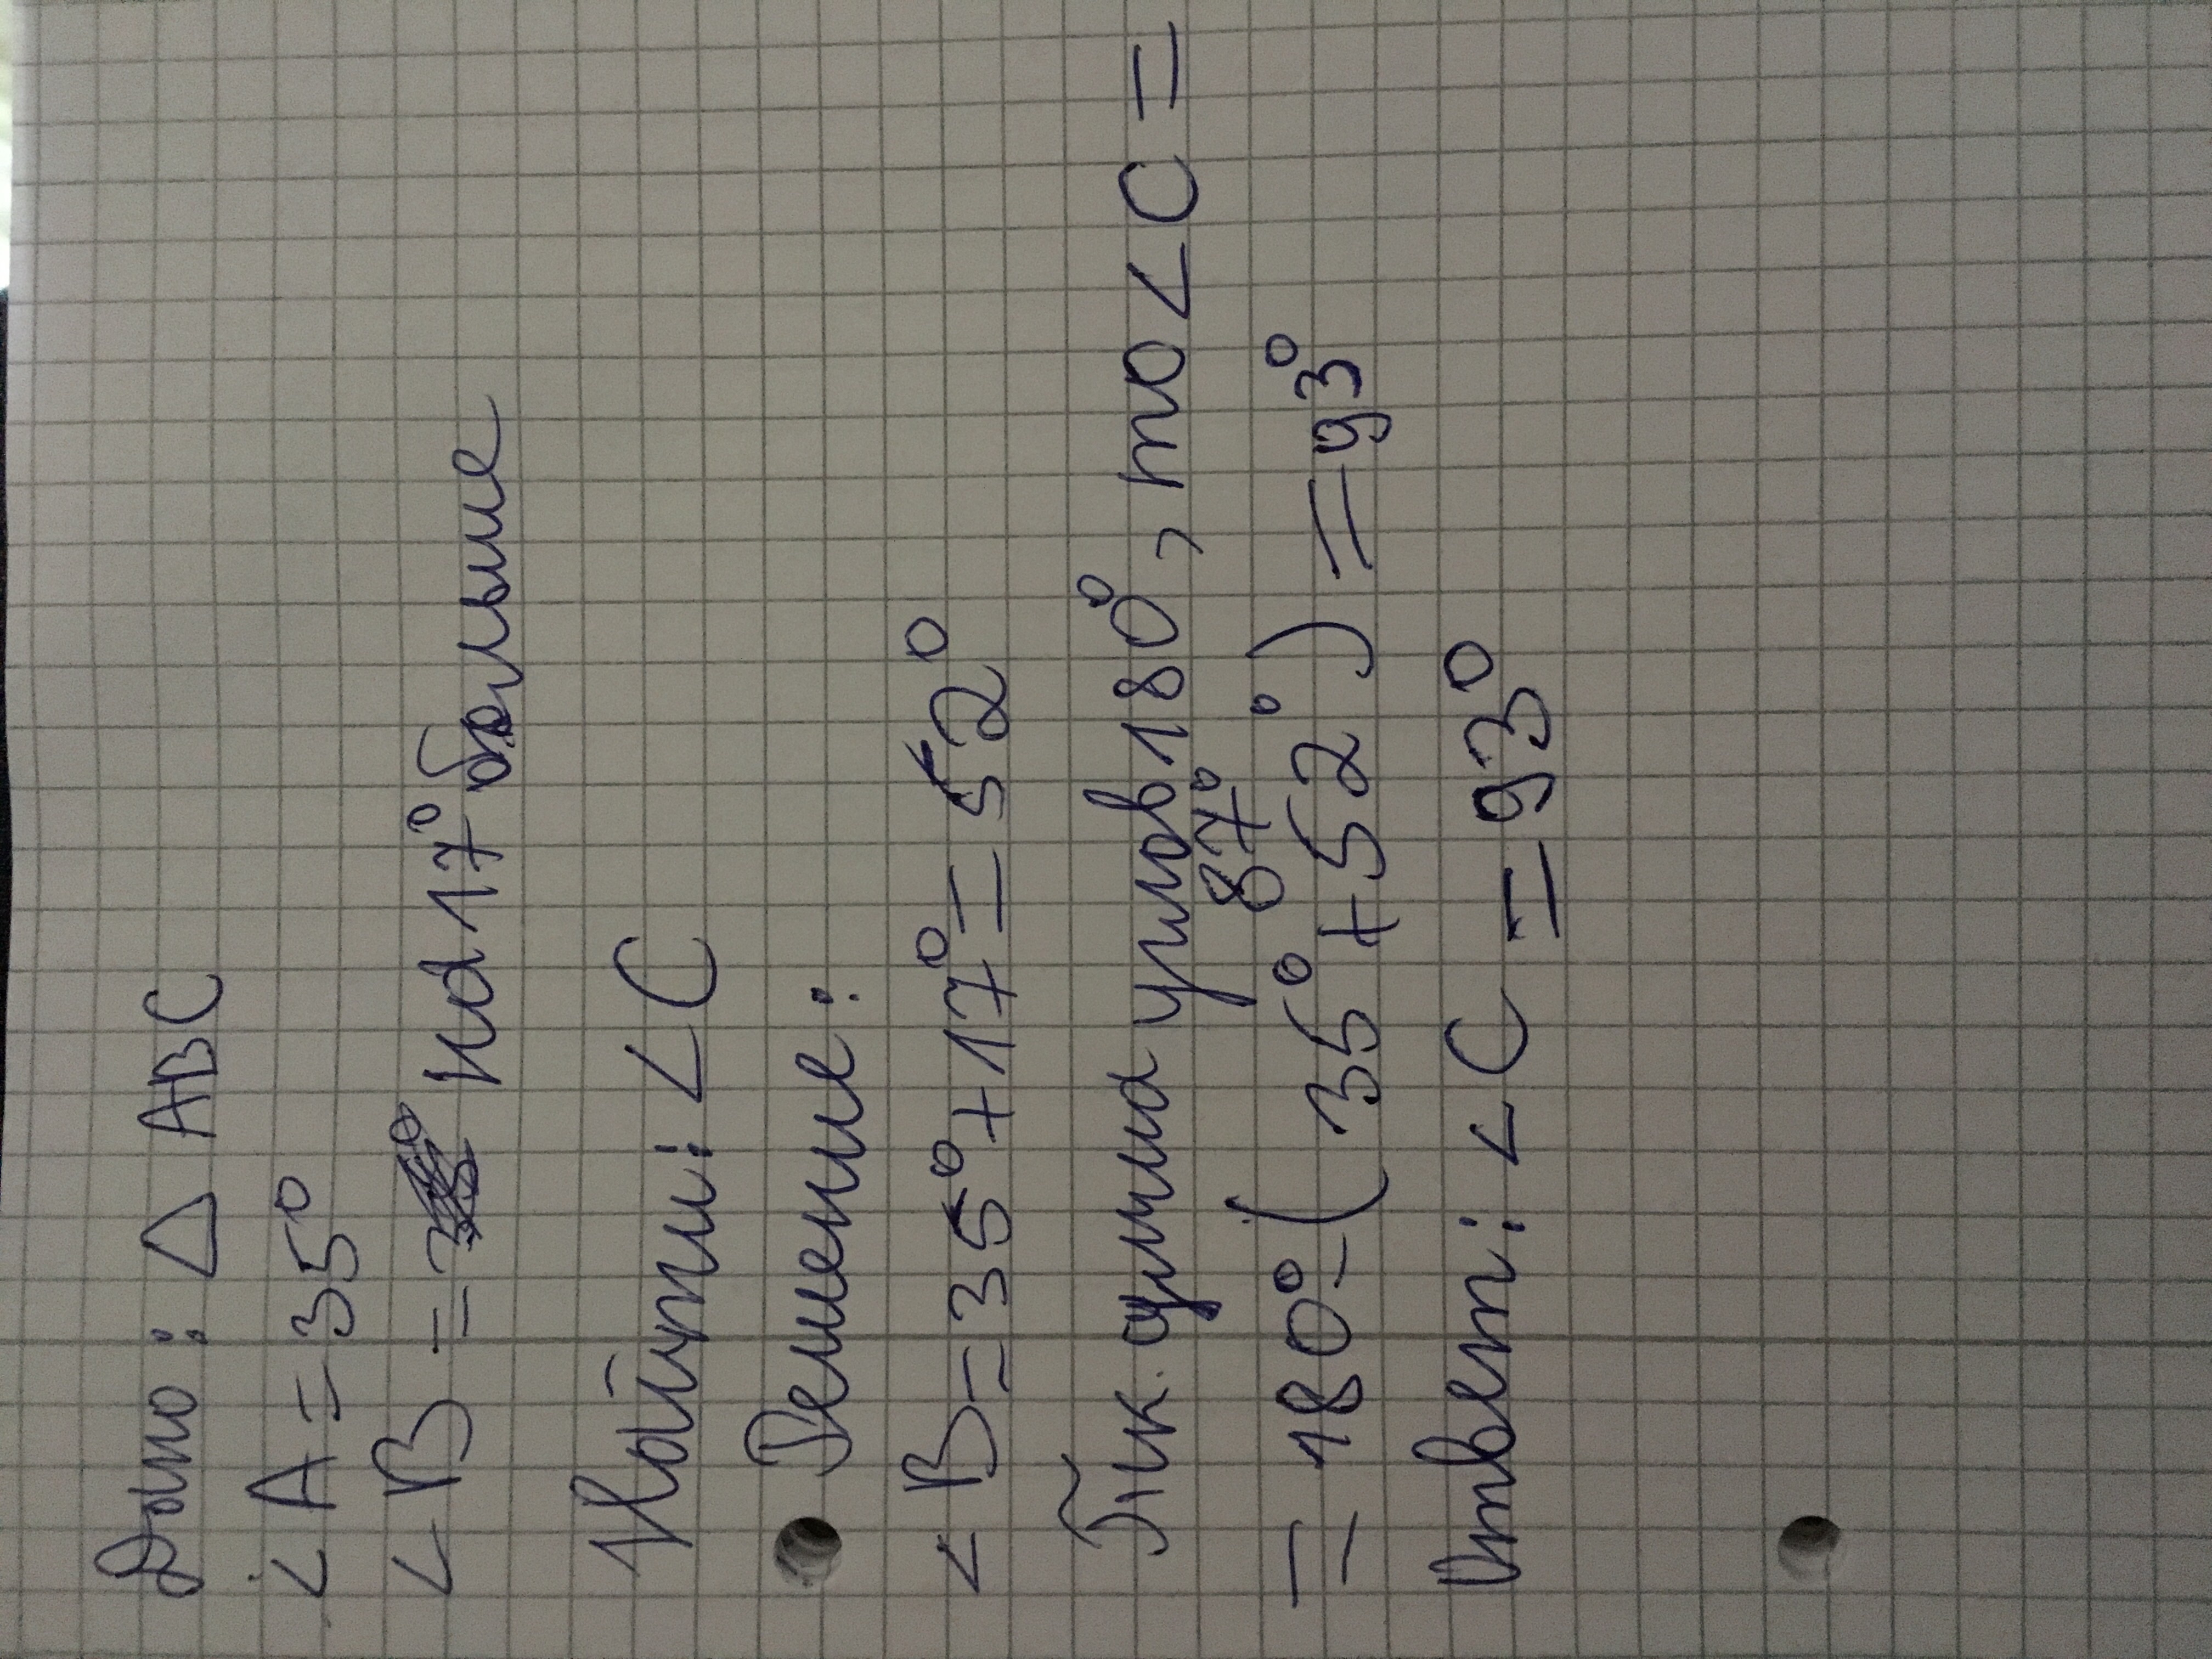 Дано: △ ABC
∠A = 35°
∠B = на 17° больше
Найти: ∠C
Решение:
∠B = 35° + 17° = 52°
Т.к. сумма углов 180°, то ∠C =
87°
= 180° - (35° + 52°) = 93°
Ответ: ∠C = 93°